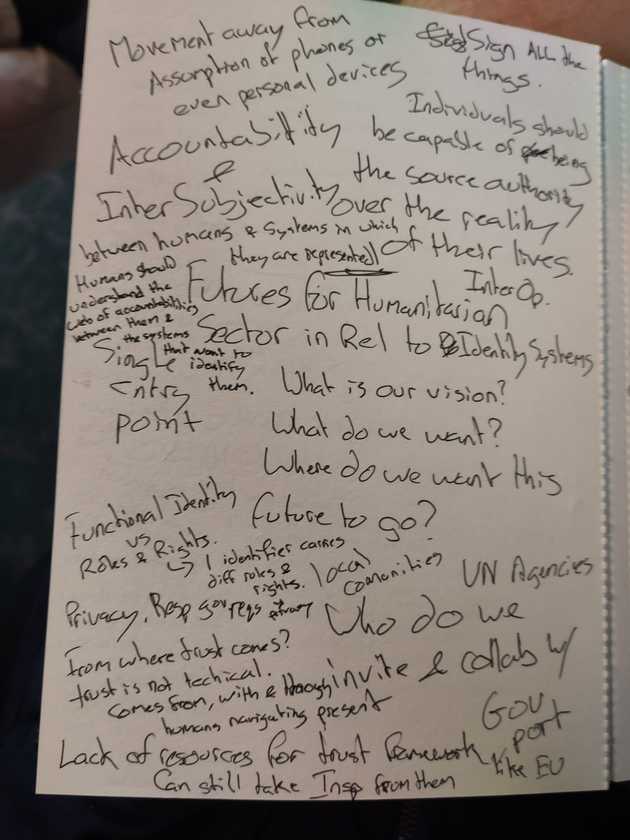 Movement away from
Assumption of phones or
even personal devices
Sign ALL the
things.
Accountability
&
InterSubjectivity
between humans & systems in which
they are represented
Individuals should
be capable of being
the source authority
over the reality
of their lives.
Humans should
understand the
web of accountabilities
between them &
the systems
that want to
identify
them.
InterOp.
Futures for Humanitarian
Sector in Rel to Identity Systems
Single
Entry
point
What is our vision?
What do we want?
Where do we want this
future to go?
Functional Identity
vs
Roles & Rights.
↳ 1 identifier carries
diff roles &
rights.
local
comunities
UN Agencies
Privacy, Resp gov regs
Who do we
invite & collab w/
From where trust comes?
trust is not techical.
comes from, with & through
humans navigating present
Gov
port
like EU
Lack of resources for trust framework
Can still take Insp from them